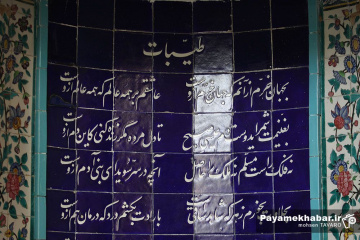 طیبات
بجهان خرم از آنم که جهان خرم ازوست
عاشقم بر همه عالم که همه عالم ازوست
بغنیمت شمر ای دوست دم عیسی صبح
تا دل مرده مگر زنده کنی کاین دم ازوست
نه فلک راست مسلم نه ملک را حاصل
آنچه در سر سویدای بنی آدم ازوست
بحلاوت بخورم زهر که شاهد ساقیست
بارادت بکشم درد که درمان هم ازوست
Payamekhabar.ir
mohsen TAYARO